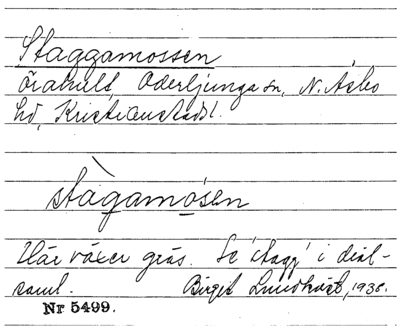 Staggamossen
Örahult, Oderljunga sn, N. Åsbo
hd, Kristianstads l.
stàgamósen
Här växer gräs. Se 'stagg' i dial-
saml. Birgit Lundkvist, 1936.
Nr 5499.